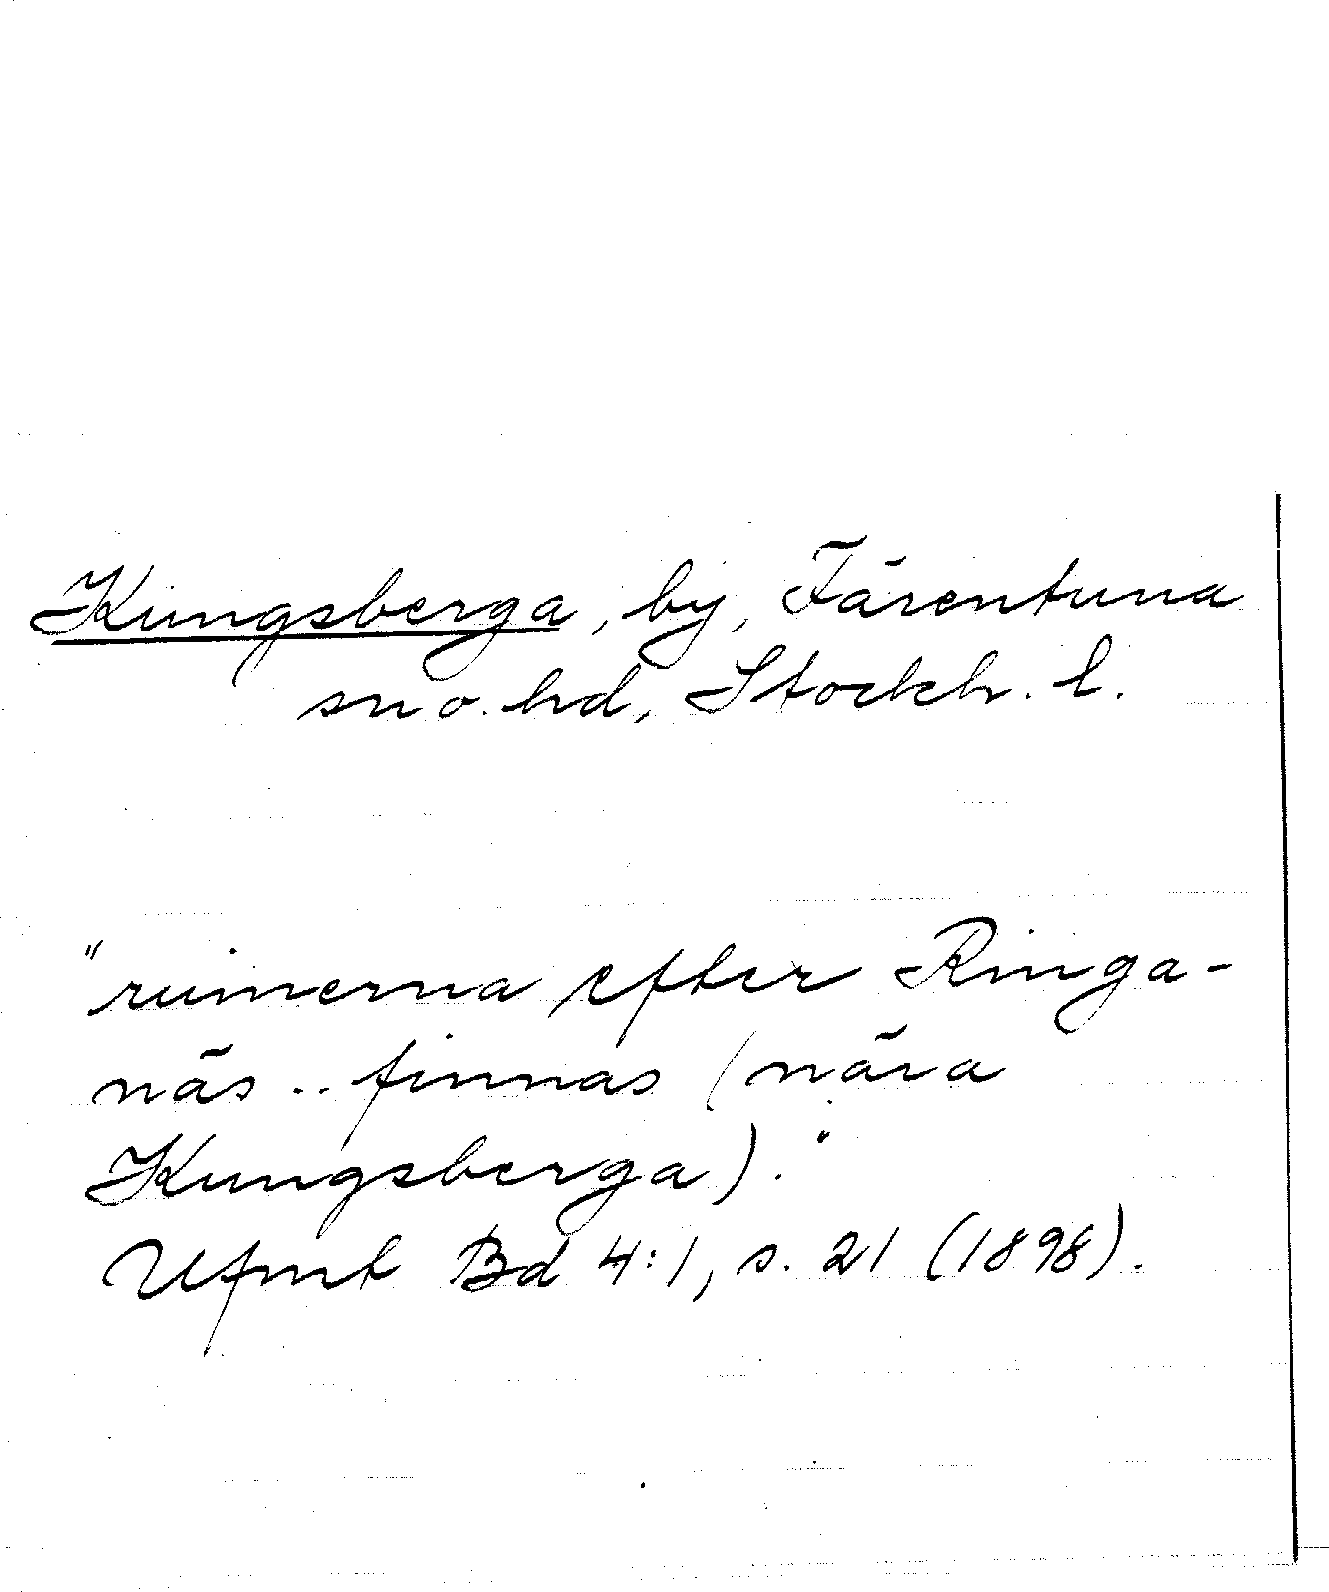 Kungsberga, by, Färentuna
sn o. hd, Stockh. l.
"ruinerna efter Ringa-
näs .. finnas (nära
Kungsberga)."
Ufmt Bd 4:1, s. 21 (1898).